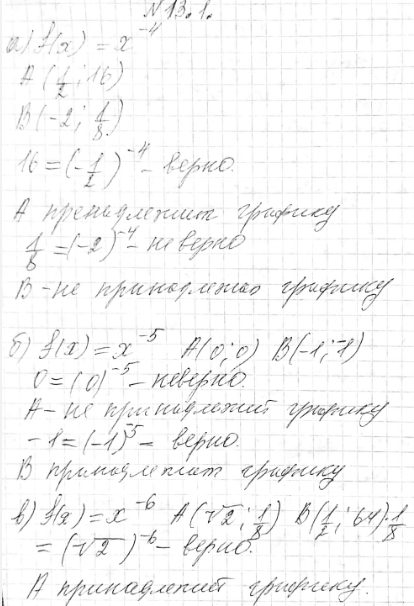 N 13.1.
а) f(x) = x^-4
A (1/2; 16)
B (-2; 1/8)
16 = (-1/2)^-4 - верно.
А пренадлежит графику
1/8 = (-2)^-4 - неверно
В - не принадлежат графику
б) f(x) = x^-5 A(0; 0) B(-1; -1)
0 = (0)^-5 - неверно.
А - не принадлежит графику
-1 = (-1)^-5 - верно.
В принадлежит графику
в) f(x) = x^-6 A(√2; 1/8) B(1/2; 64). 1/8
= (√2)^-6 - верно.
А принадлежит графику.